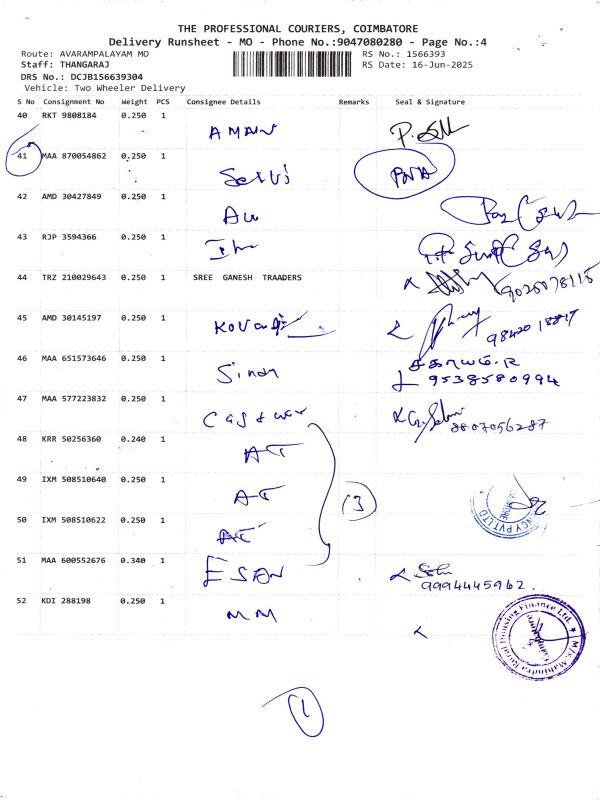 THE PROFESSIONAL COURIERS, COIMBATORE
Delivery Runsheet - MO - Phone No.:9047080280 - Page No.:4
Route: AVARAMPALAYAM MO RS No.: 1566393
Staff: THANGARAJ RS Date: 16-Jun-2025
DRS No.: DCJB156639304
Vehicle: Two Wheeler Delivery
S No Consignment No Weight PCS Consignee Details Remarks Seal & Signature
40 RKT 9808184 0.250 1
AMAN
41 MAA 870054862 0.250 1
Selvi
42 AMD 30427849 0.250 1
43 RJP 3594366 0.250 1
44 TRZ 210029643 0.250 1 SREE GANESH TRAADERS
45 AMD 30145197 0.250 1
98420 18817
46 MAA 651573646 0.250 1
9538580994
47 MAA 577223832 0.250 1
8807056287
48 KRR 50256360 0.240 1
AT
49 IXM 508510640 0.250 1
AT
13
50 IXM 508510622 0.250 1
AT
NCY PVT LTD
51 MAA 600552676 0.340 1
ESAN
9994445962.
52 KDI 288198 0.250 1
MM
M/s. Mahindra Rural Housing Finance Ltd.
1